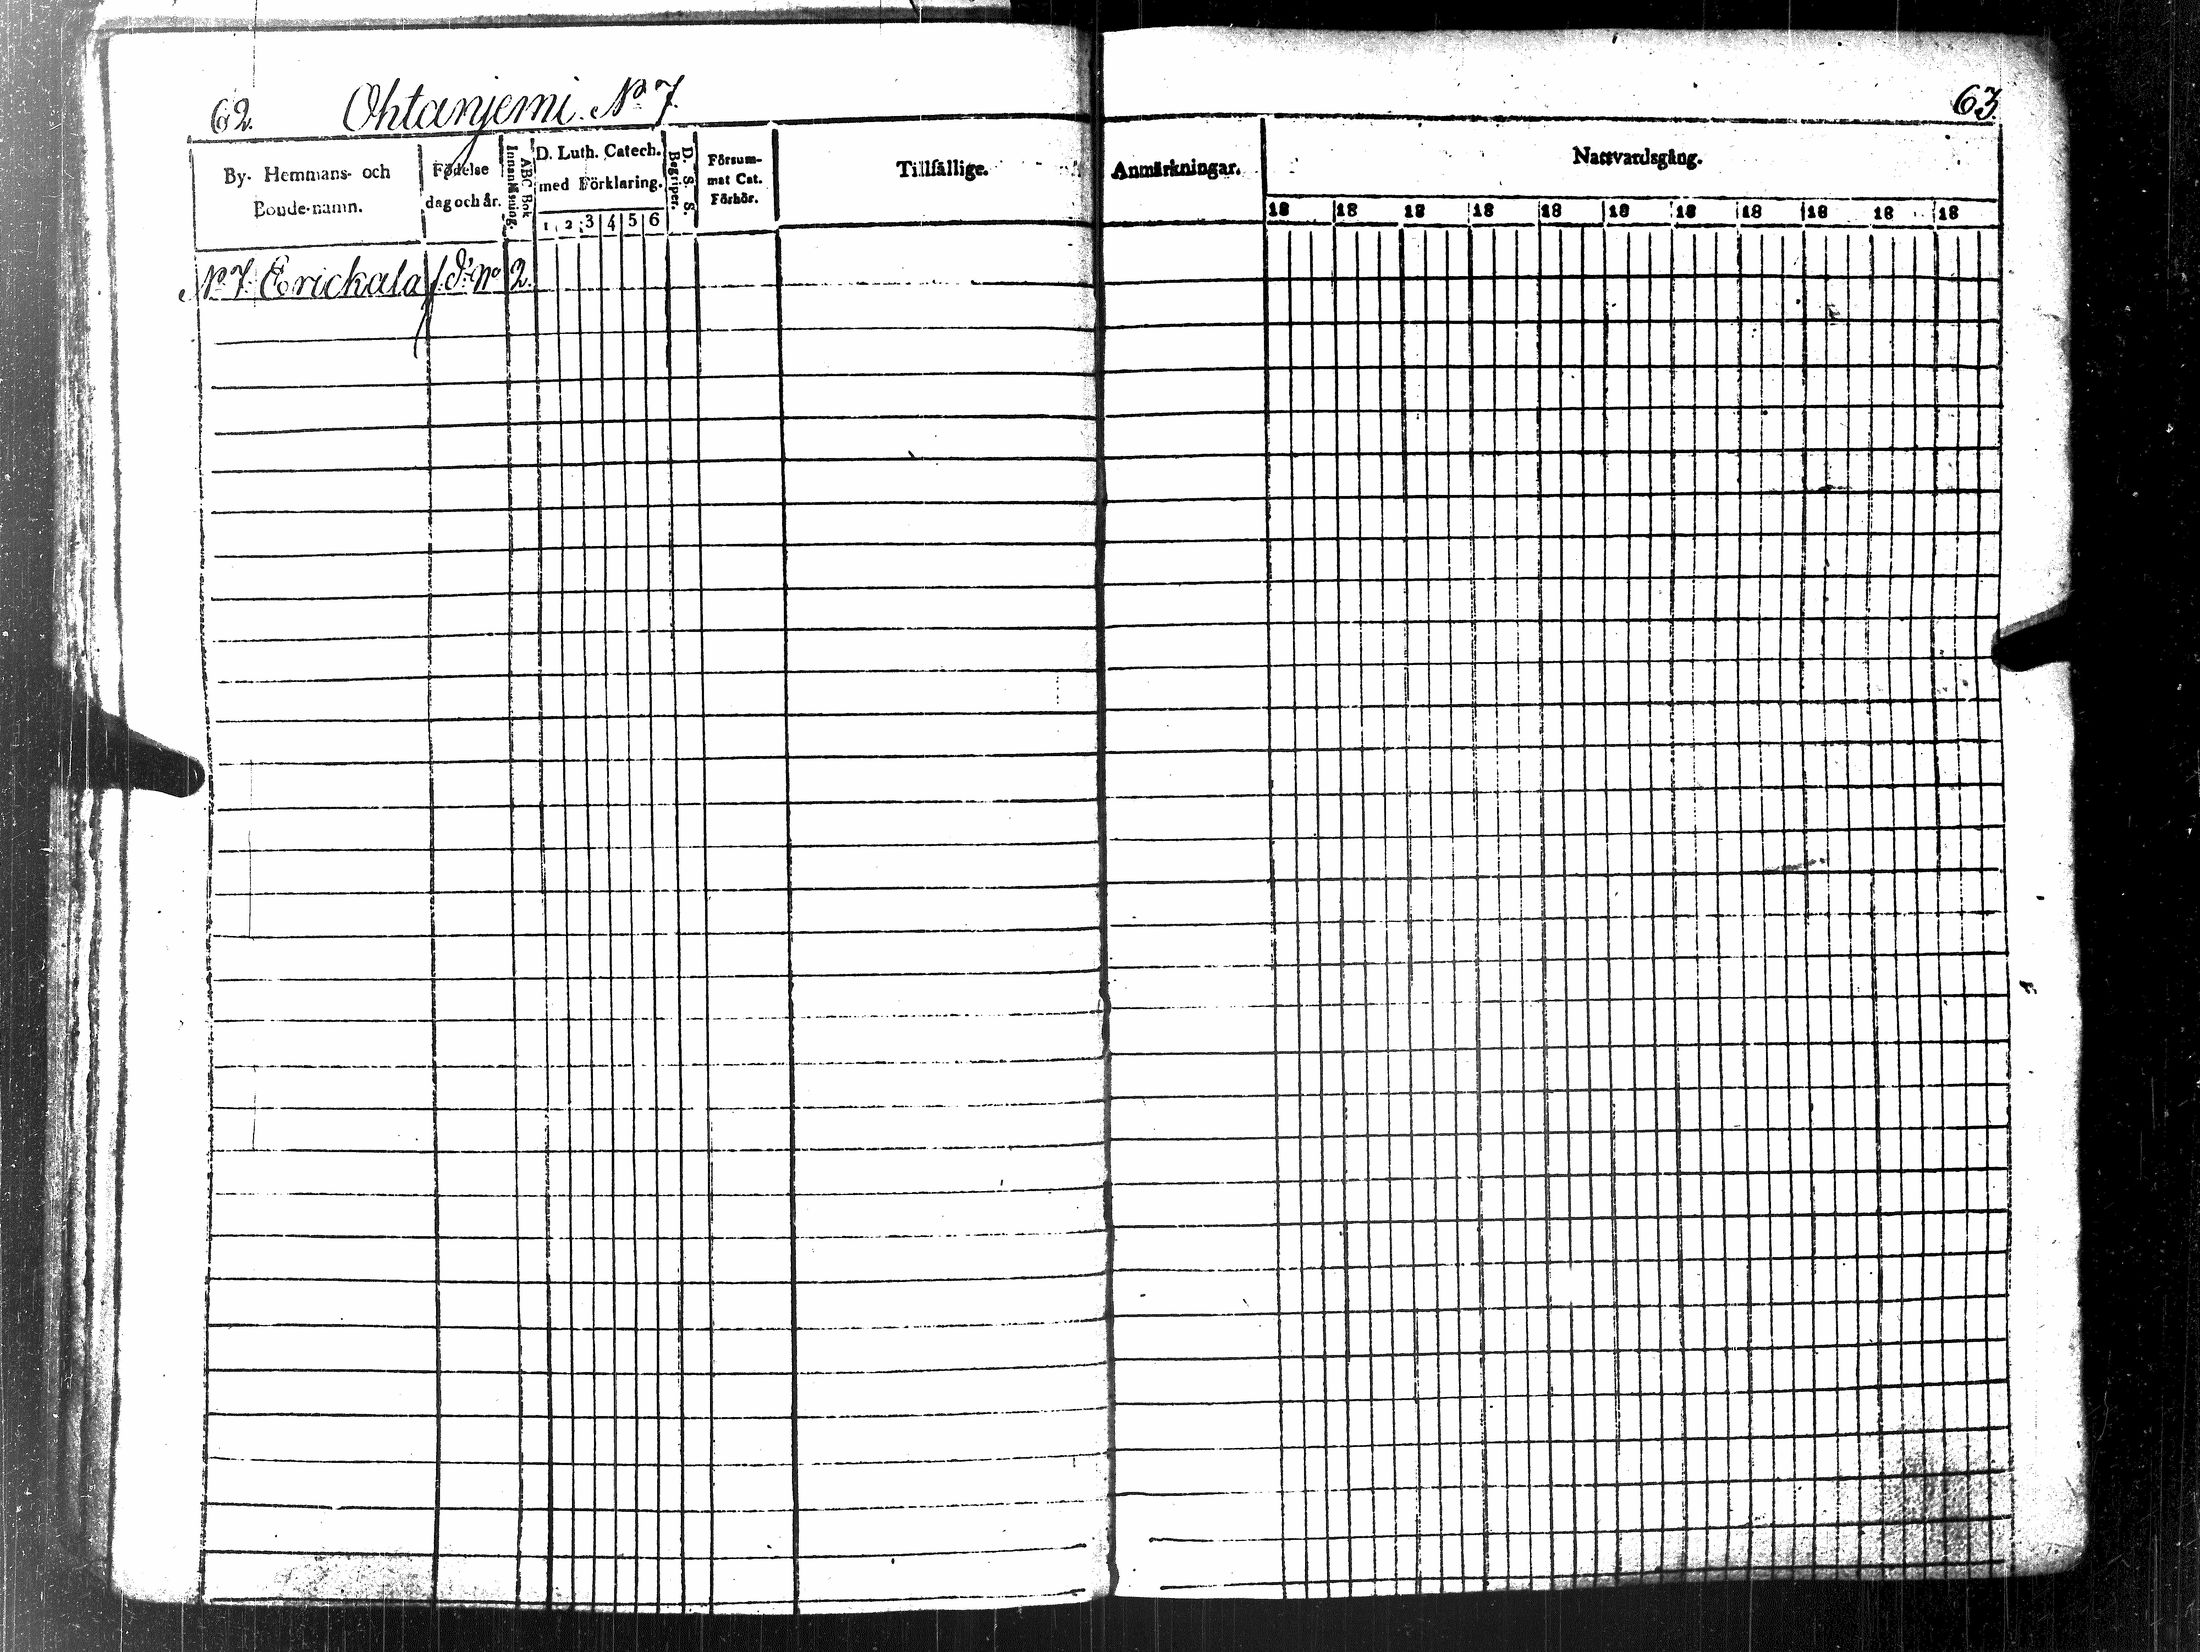 62. Ohtanjemi. No 7.
63.
By- Hemmans- och
Bonde-namn.
Födelse
dag och år.
ABC Bok
Innanläsning.
D. Luth. Catech.
med Förklaring.
1 2 3 4 5 6
D. S. S.
Begriper.
Försum-
mat Cat.
Förhör.
Tillfällige.
Anmärkningar.
Nattvardsgång.
18 18 18 18 18 18 18 18 18 18 18
No 7. Erickala f. d. No 2.